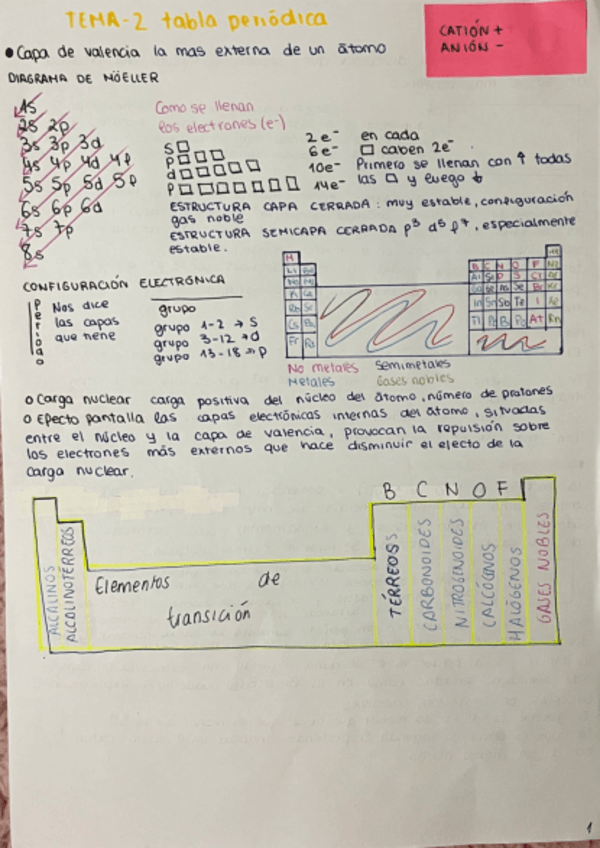 TEMA-2 tabla periódica
CATIÓN +
ANIÓN -
• Capa de valencia la mas externa de un átomo
DIAGRAMA DE MÖELLER
1s
2s 2p
3s 3p 3d
4s 4p 4d 4f
5s 5p 5d 5f
6s 6p 6d
7s 7p
8s
Como se llenan
los electrones (e-)
S □ 2e-
P □□□ 6e-
d □□□□□ 10e-
□□□□□□□ 14e-
en cada
□ caben 2e-
Primero se llenan con ↑ todas
las □ y luego ↓
ESTRUCTURA CAPA CERRADA: muy estable, configuración
gas noble
ESTRUCTURA SEMICAPA CERRADA p³ d⁵ f⁷, especialmente
estable.
CONFIGURACIÓN ELECTRÓNICA
Periodo
Nos dice
las capas
que tiene
grupo
grupo 1-2 → S
grupo 3-12 → d
grupo 13-18 → p
H
Li Be
Rb Sr
Cs Ba
Fr Ra
B C N O F Ne
Al Si P S Cl
In Sn Sb Te I
Tl Pb Bi Po At Rn
No metales Semimetales
Metales Gases nobles
o Carga nuclear carga positiva del núcleo del átomo, número de protones
o Efecto pantalla las capas electrónicas internas del átomo, situadas
entre el núcleo y la capa de valencia, provocan la repulsión sobre
los electrones más externos que hace disminuir el efecto de la
carga nuclear.
B C N O F
ALCALINOS
ALCALINOTÉRREOS
Elementos de
transición
TÉRREOS
CARBONOIDES
NITROGINOIDES
CALCÓGNOS
HALÓGENOS
GASES NOBLES
1